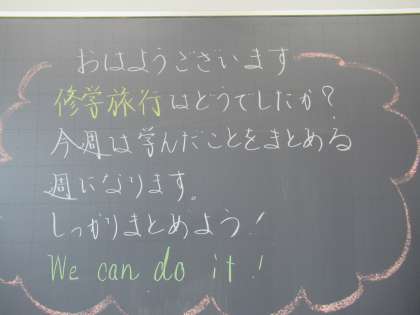 おはようございます
修学旅行はどうでしたか?
今週は学んだことをまとめる
週になります。
しっかりまとめよう!
We can do it!